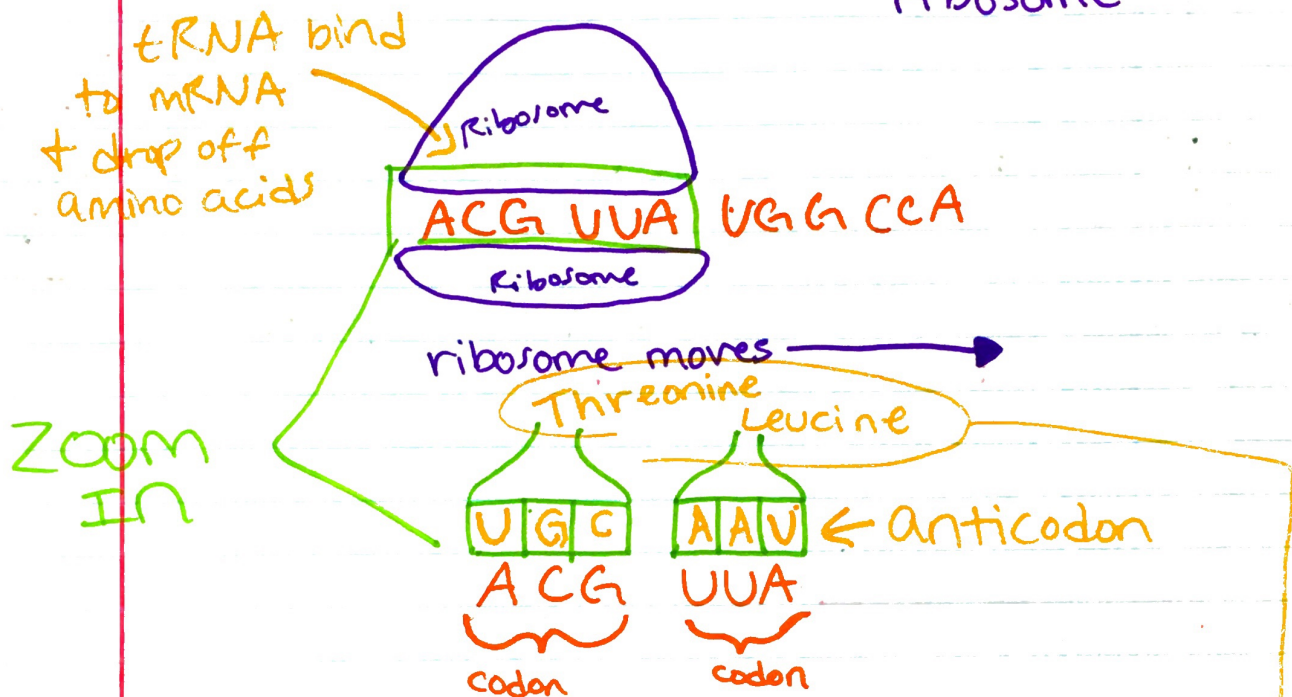 ribosome
tRNA bind
to mRNA
+ drop off
amino acids
Ribosome
ACG UUA UGG CCA
Ribosome
ribosome moves
Threonine
Leucine
Zoom
In
U G C A A U ← anticodon
ACG UUA
codon codon